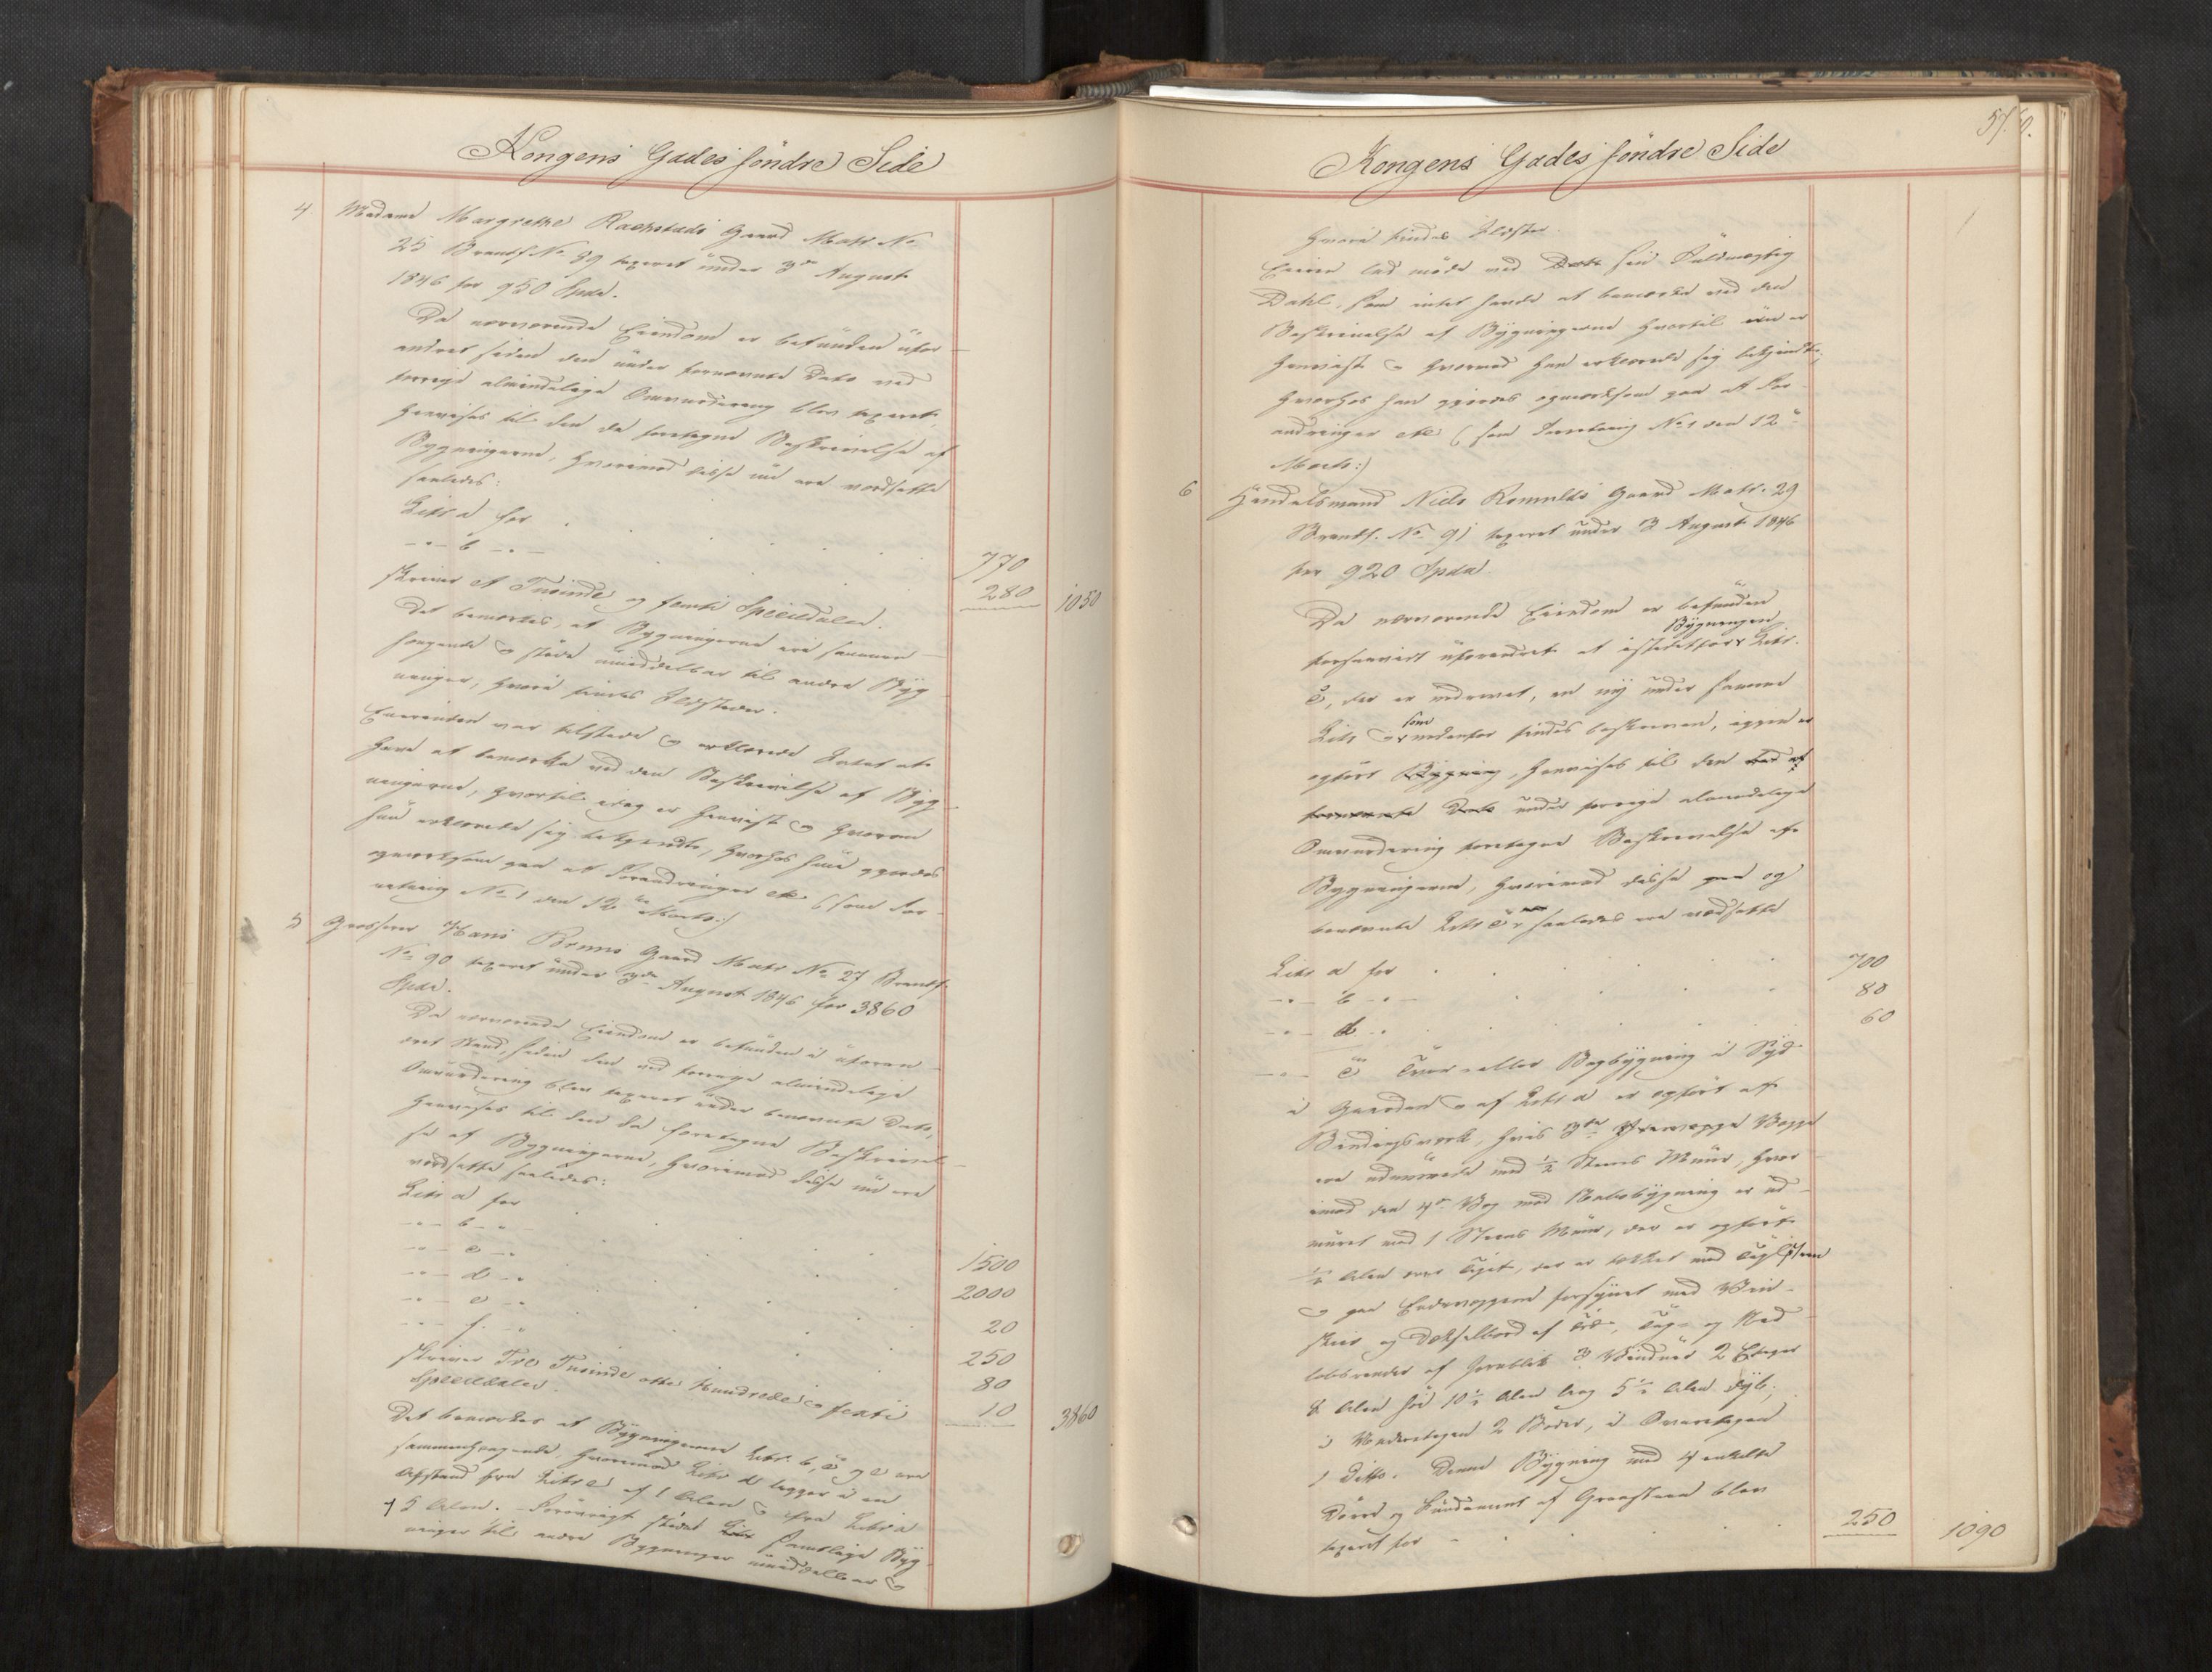 Kongens Gades søndre Side
4 Madame Margrethe Rachstads Gaard Matr No
25 Brandf No 89 taxeret under 3die August
1846 for 950 Spdr.
Da nærværende Eiendom er befunden ufor-
andret siden den under fornævnte Dato ved
forrige almindelige Omvurdering blev taxeret,
henvises til den da foretagne Beskrivelse af
Bygningerne, hvorimod disse nu ere værdsatte
saaledes:
Litr a for 770
-"- b -"- 280 1050
skriver et Tusinde og femti Speciedaler.
Det bemærkes, at Bygningerne ere sammen-
hængende og støde umiddelbar til andre Byg-
ninger, hvori findes Ildsteder.
Eierinden var tilstede og erklærede Intet at
have at bemærke ved den Beskrivelse af Byg-
ningerne, hvortil idag er henviist og hvorom
hun erklærede sig bekjendt, hvorhos hun gjordes
opmærksom paa at Forandringer etc (som For-
retning No 1 den 12te Marts:)
5 Grosserer Hans Bruns Gaard Matr No 27 Brandf
No 90 taxeret under 3die August 1846 for 3860
Spdr.
Da nærværende Eiendom er befunden i uforan-
dret Stand, siden den ved forrige almindelige
Omvurdering blev taxeret under benævnte Dato,
henvises til den da foretagne Beskrivel-
se af Bygningerne, hvorimod disse nu ere
værdsatte saaledes:
Litr a for 1500
-"- b -"- 2000
-"- c -"- 20
-"- d -"- 250
-"- e -"- 80
-"- f -"- 10 3860
skriver Tre Tusinde otte Hundrede og sexti
Speciedaler.
Det bemærkes at Bygningerne Litr b, c og e ere
sammenhængende, hvorimod Litr d ligger i en
Afstand fra Litr e af 1 Alen og fra Litr a
5 Alen. Forøvrigt støder samtlige Byg-
ninger til andre Bygninger umiddelbar og
57.
Kongens Gades søndre Side
hvori findes Ildsted.
Eieren lod møde ved sin Fuldmægtig
Dahl, som intet havde at bemærke ved den
Beskrivelse af Bygningerne hvortil er
henviist og hvormed han erklærede sig bekjendt,
hvorhos han gjordes opmærksom paa at For-
andringer etc (som Forretning No 1 den 12te
Marts:)
6 Handelsmand Niels Romulds Gaard Matr. 29
Brandf. No 91 taxeret under 3 August 1846
for 920 Spdr.
Da nærværende Eiendom er befunden
forsaavidt uforandret at istedetfor Bygningen Litr.
c, der er nedrevet, en ny under samme
Litr som nedenfor findes beskreven, igjen er
opført, henvises til den
under forrige almindelige
Omvurdering foretagne Beskrivelse af
Bygningerne, hvorimod disse og
benævnte Litr c saaledes ere værdsatte
Litr a for 700
-"- b -"- 80
-"- d -"- 60
-"- c Tvær eller Bagbygning i Syd
i Gaarden og af Litr a er opført af
Bindingsværk, hvis 3de Vægge
ere udmurede med ½ Steens Muur, hvor-
imod den 4de Væg mod Nabobygning er ud-
muret med 1 Steens Muur, der er opført
½ Alen over Taget, der er tækket med Tagsteen
og paa Endevæggene forsynet med Vind-
skier og Dækselbord af Træ, Tag- og Ned-
løbsrender af Jernblik 3 Vinduer 2 Etager
8 Alen høi 10½ Alen lang 5½ Alen dyb;
i Underetagen 2 Boder, i Overetagen
1 ditto. Denne Bygning med 4 enkelte
Døre og Fundament af Graasteen blev
taxeret for 250 1090